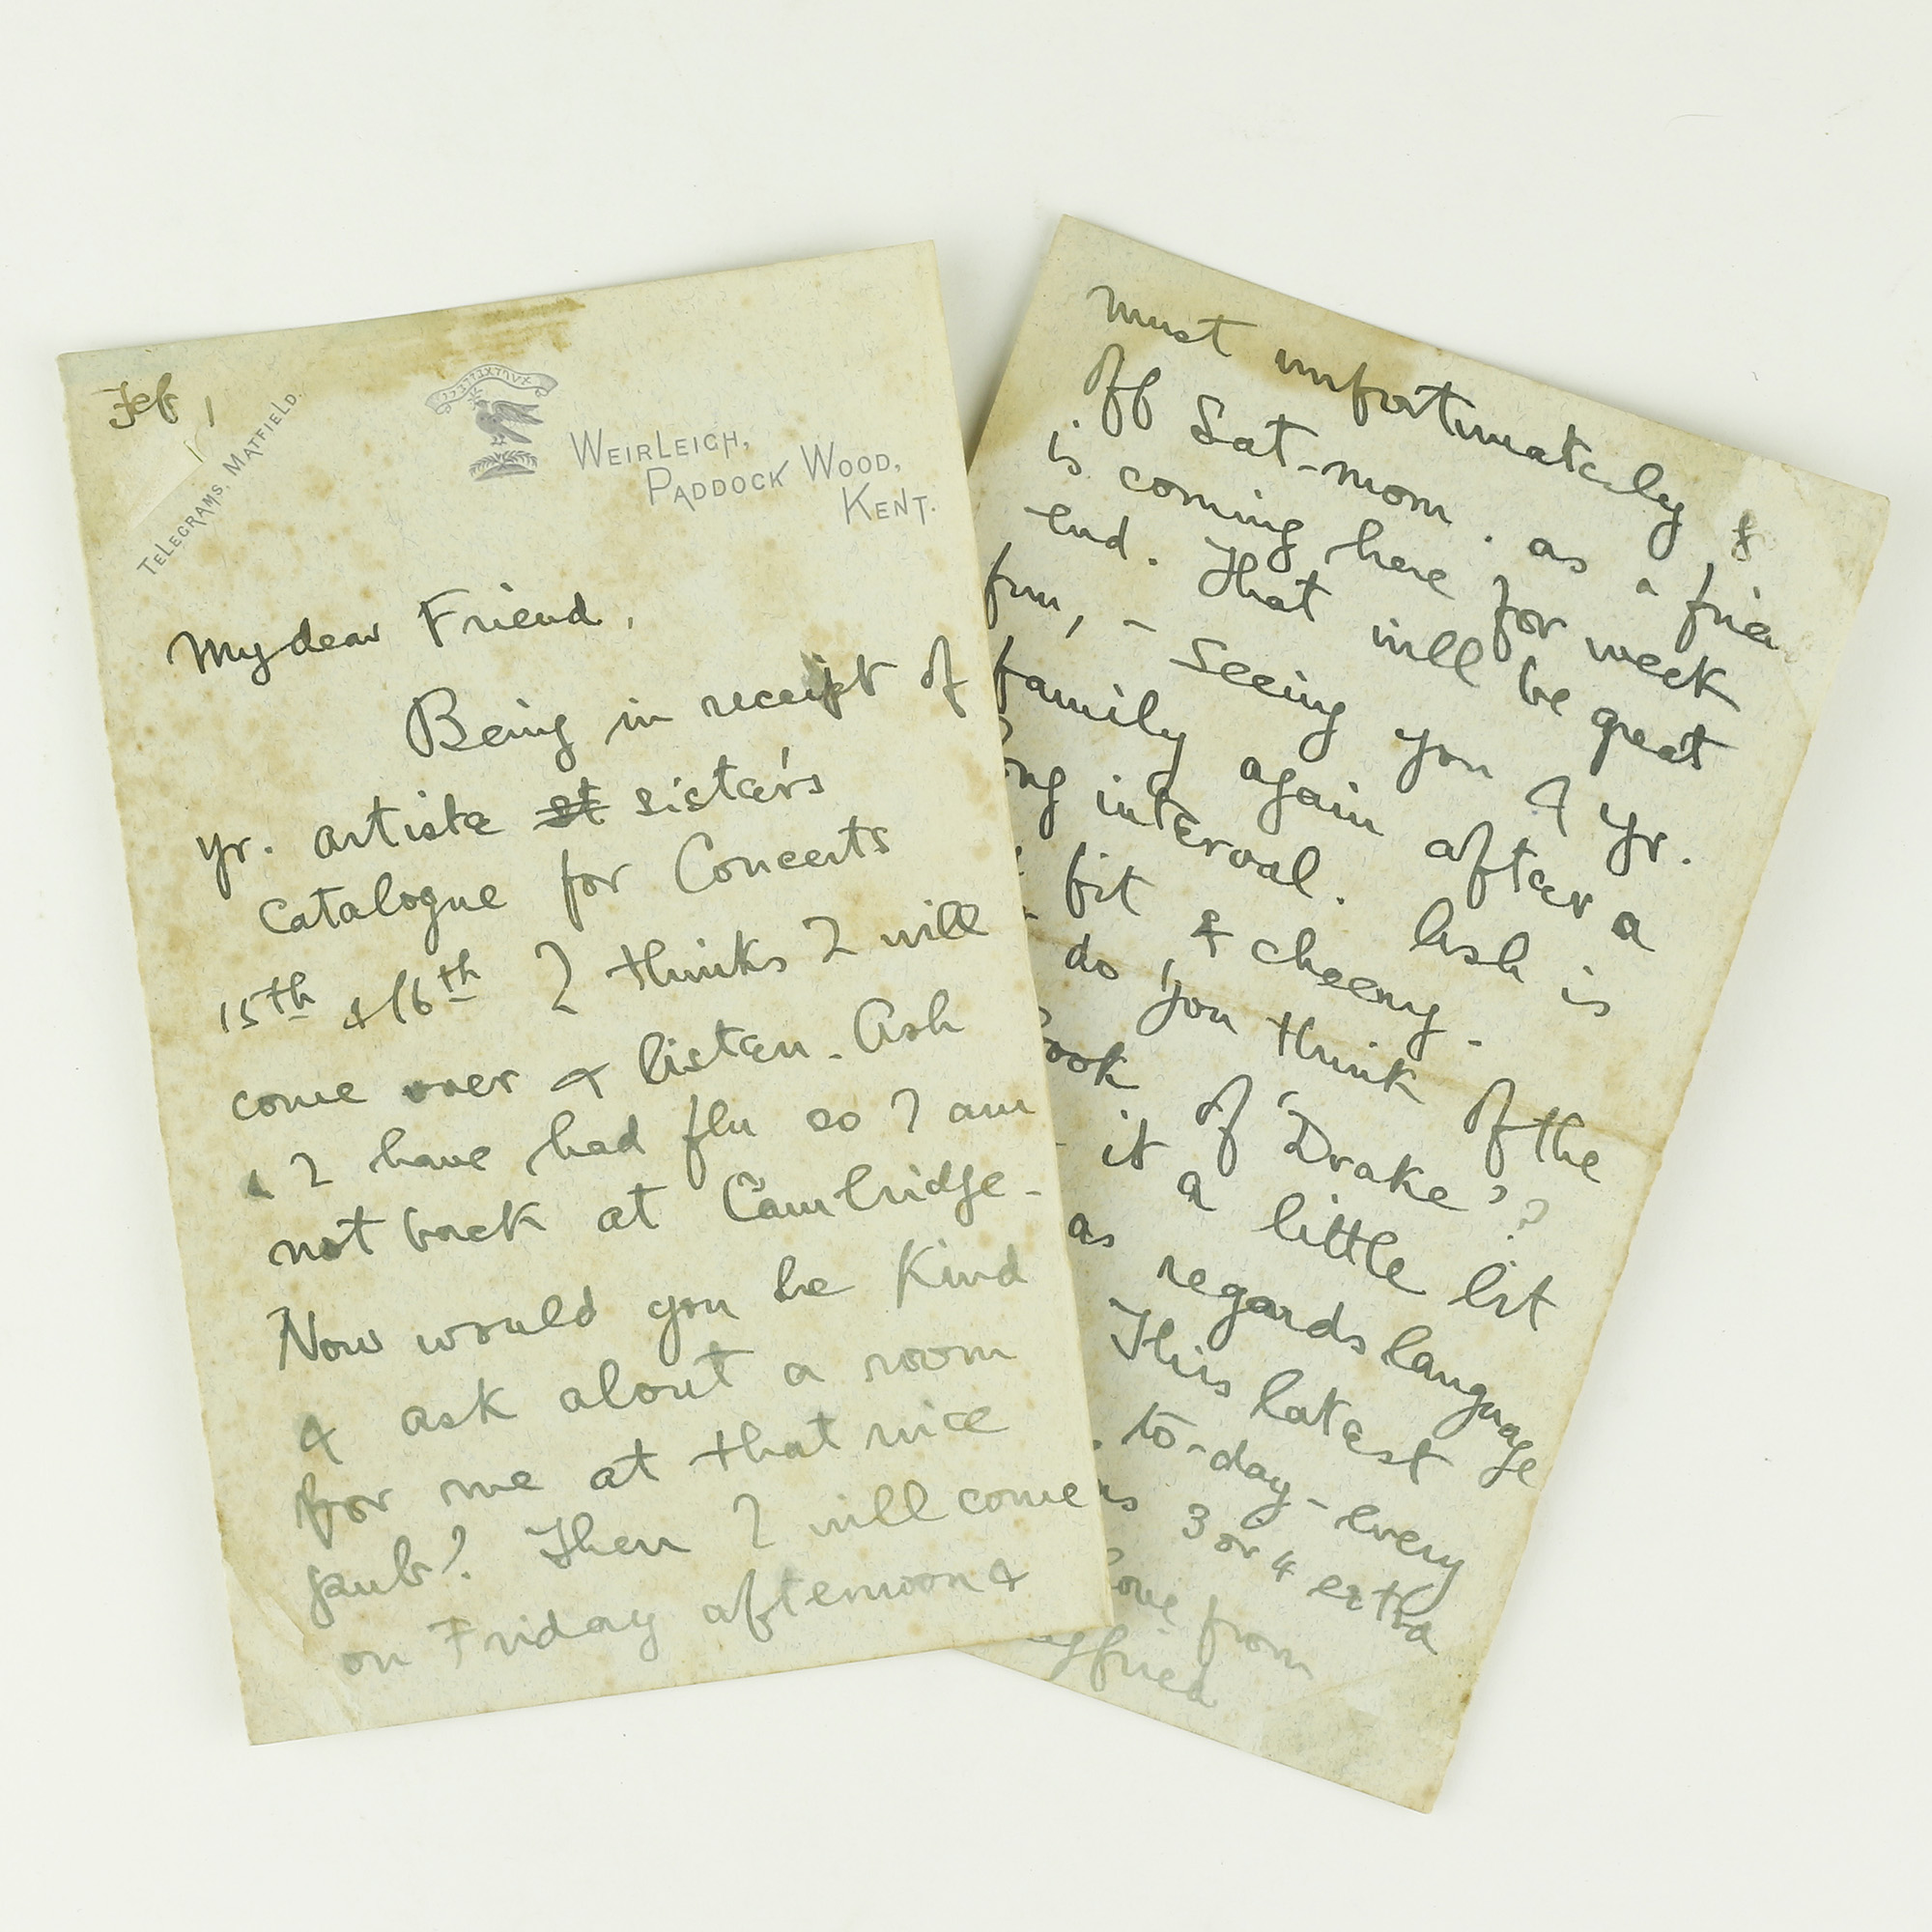 Feb 1
TELEGRAMS, MATFIELD.
WEIRLEIGH,
PADDOCK WOOD,
KENT.
My dear Friend,
Being in receipt of
yr. artiste st sister's
Catalogue for Concerts
15th & 16th I thinks I will
come over & listen. Ash
& I have had flu so I am
not back at Cambridge.
Now would you be kind
& ask about a room
for me at that nice
pub? Then I will come
on Friday afternoon &
must unfortunately
off Sat-morn. as a
is coming here for week
end. That will be great
fun, - seeing you & yr.
family again after a
interval. Ash is
fit & cheery.
do you think of the
of 'Drake'?
it a little bit
as regards language
This latest
to-day - every
3 or 4 extra
from